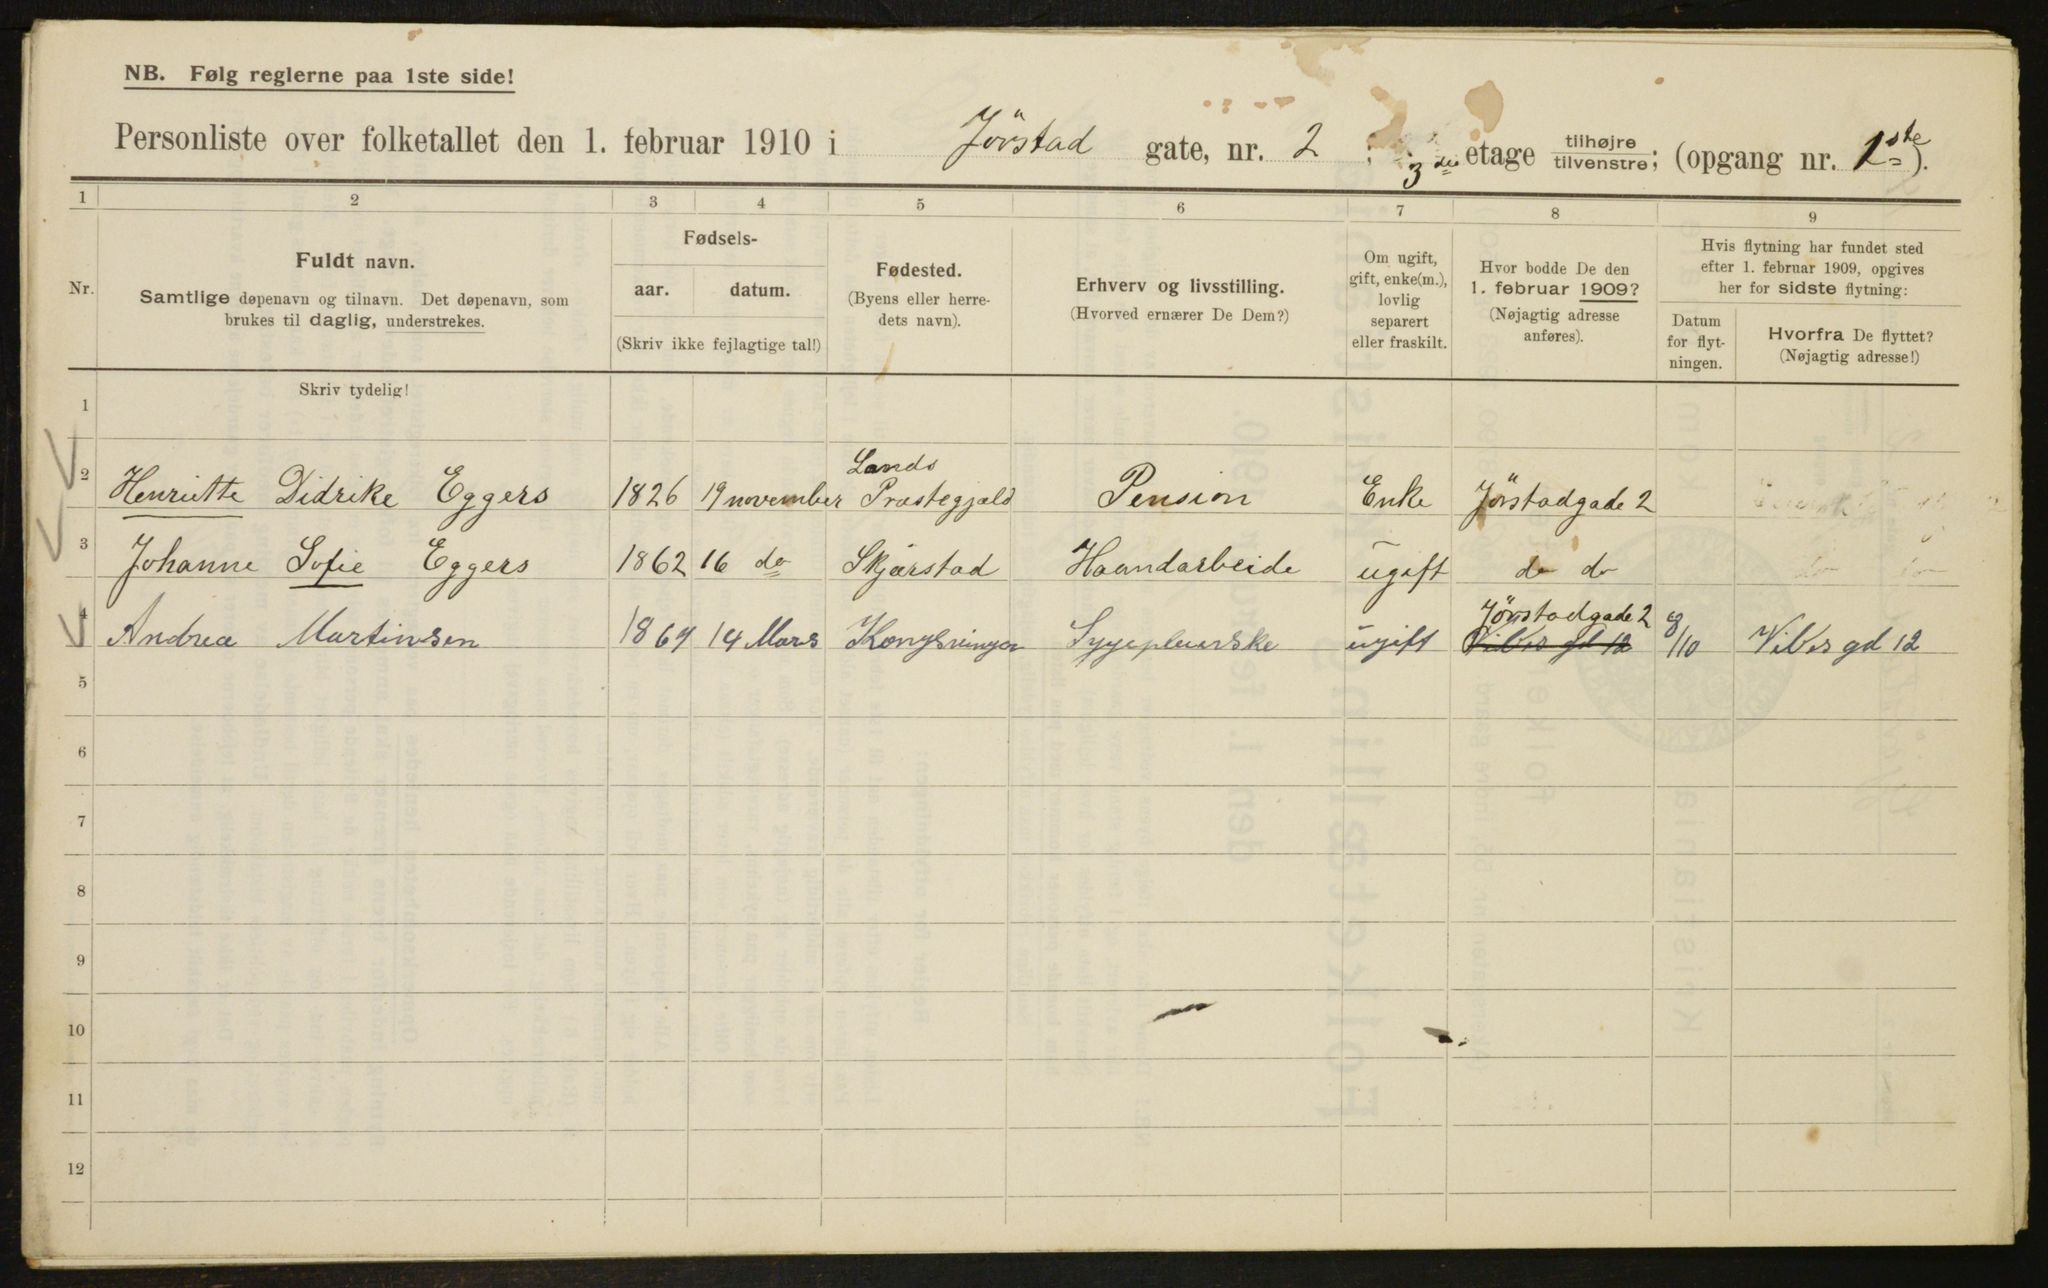 NB. Følg reglerne paa 1ste side!
Personliste over folketallet den 1. februar 1910 i Jörstad gate, nr. 2 ; 3de etage tilhøjre/tilvenstre; (opgang nr. 1ste).
1 2 3 4 5 6 7 8 9
Nr.
Fuldt navn.
Samtlige døpenavn og tilnavn. Det døpenavn, som
brukes til daglig, understrekes.
Fødsels-
aar. datum.
(Skriv ikke fejlagtige tal!)
Fødested.
(Byens eller herre-
dets navn).
Erhverv og livsstilling.
(Hvorved ernærer De Dem?)
Om ugift,
gift, enke(m.),
lovlig
separert
eller fraskilt.
Hvor bodde De den
1. februar 1909?
(Nøjagtig adresse
anføres).
Hvis flytning har fundet sted
efter 1. februar 1909, opgives
her for sidste flytning:
Datum
for flyt-
ningen.
Hvorfra De flyttet?
(Nøjagtig adresse!)
Skriv tydelig!
1
2 Henriette Didrike Eggers 1826 19 november Lands Præstegjæld Pension Enke Jörstadgade 2
3 Johanne Sofie Eggers 1862 16 do Skjærstad Haandarbeide ugift do do
4 Andrea Martinsen 14 Mars Kongsvinger ugift Jörstadgade 2 Vibes gd 12 8/10 Vibes gd 12
5
6
7
8
9
10
11
12